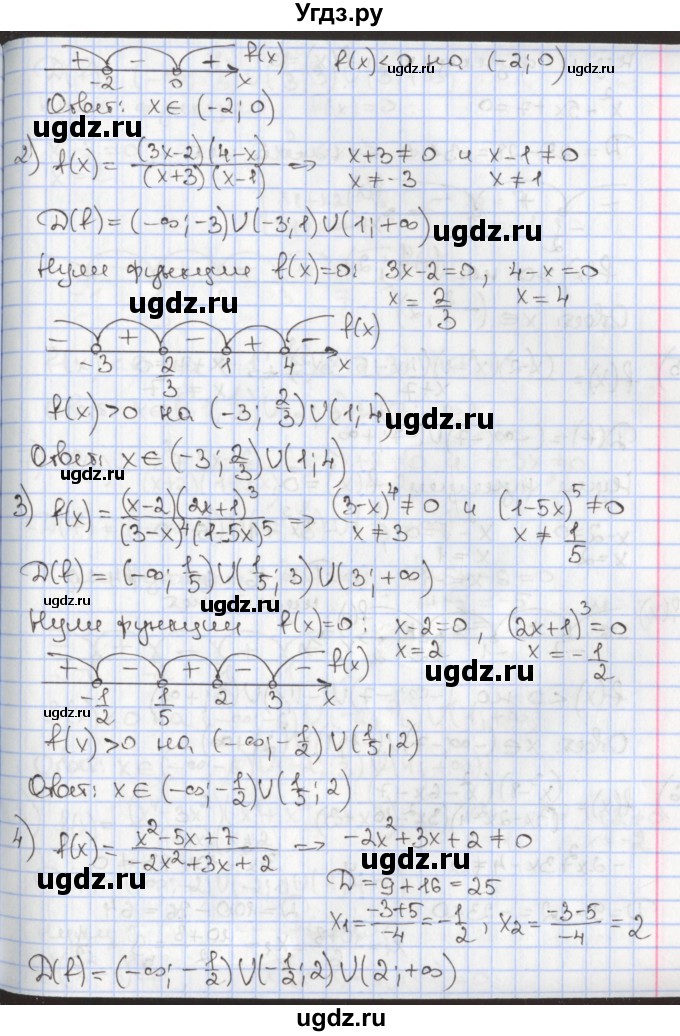 Угдз.ру
+ - + f(x) f(x)<0 на (-2; 0)
-2 0 x
ugdz.ru ugdz.ru
Ответ: x∈ (-2; 0)
ugdz.ru
2) f(x) = (3x-2)(4-x)/(x+3)(x-1) => x+3≠0 и x-1≠0
x≠-3 x≠1
D(f) = (-∞; -3)∪(-3; 1)∪(1; +∞)
ugdz.ru
Нули функции f(x)=0: 3x-2=0, 4-x=0
x = 2/3 x=4
ugdz.ru
- + - + - f(x)
-3 2/3 1 4 x
f(x)>0 на (-3; 2/3)∪(1; 4)
ugdz.ru
Ответ: x∈(-3; 2/3)∪(1; 4)
3) f(x) = (x-2)(2x+1)³/(3-x)⁴(1-5x)⁵ => (3-x)⁴≠0 и (1-5x)⁵≠0
x≠3 x≠1/5
D(f) = (-∞; 1/5)∪(1/5; 3)∪(3; +∞)
ugdz.ru ugdz.ru
Нули функции f(x)=0: x-2=0, (2x+1)³=0
x=2 x=-1/2
ugdz.ru
+ - + - - f(x)
-1/2 1/5 2 3 x
ugdz.ru
f(x)>0 на (-∞; -1/2)∪(1/5; 2)
ugdz.ru
Ответ: x∈(-∞; -1/2)∪(1/5; 2)
4) f(x) = x²-5x+7/-2x²+3x+2 => -2x²+3x+2≠0
ugdz.ru ugdz.ru
D=9+16=25
x₁=-3+5/-4=-1/2, x₂=-3-5/-4=2
ugdz.ru
D(f) = (-∞; -1/2)∪(-1/2; 2)∪(2; +∞)
ugdz.ru